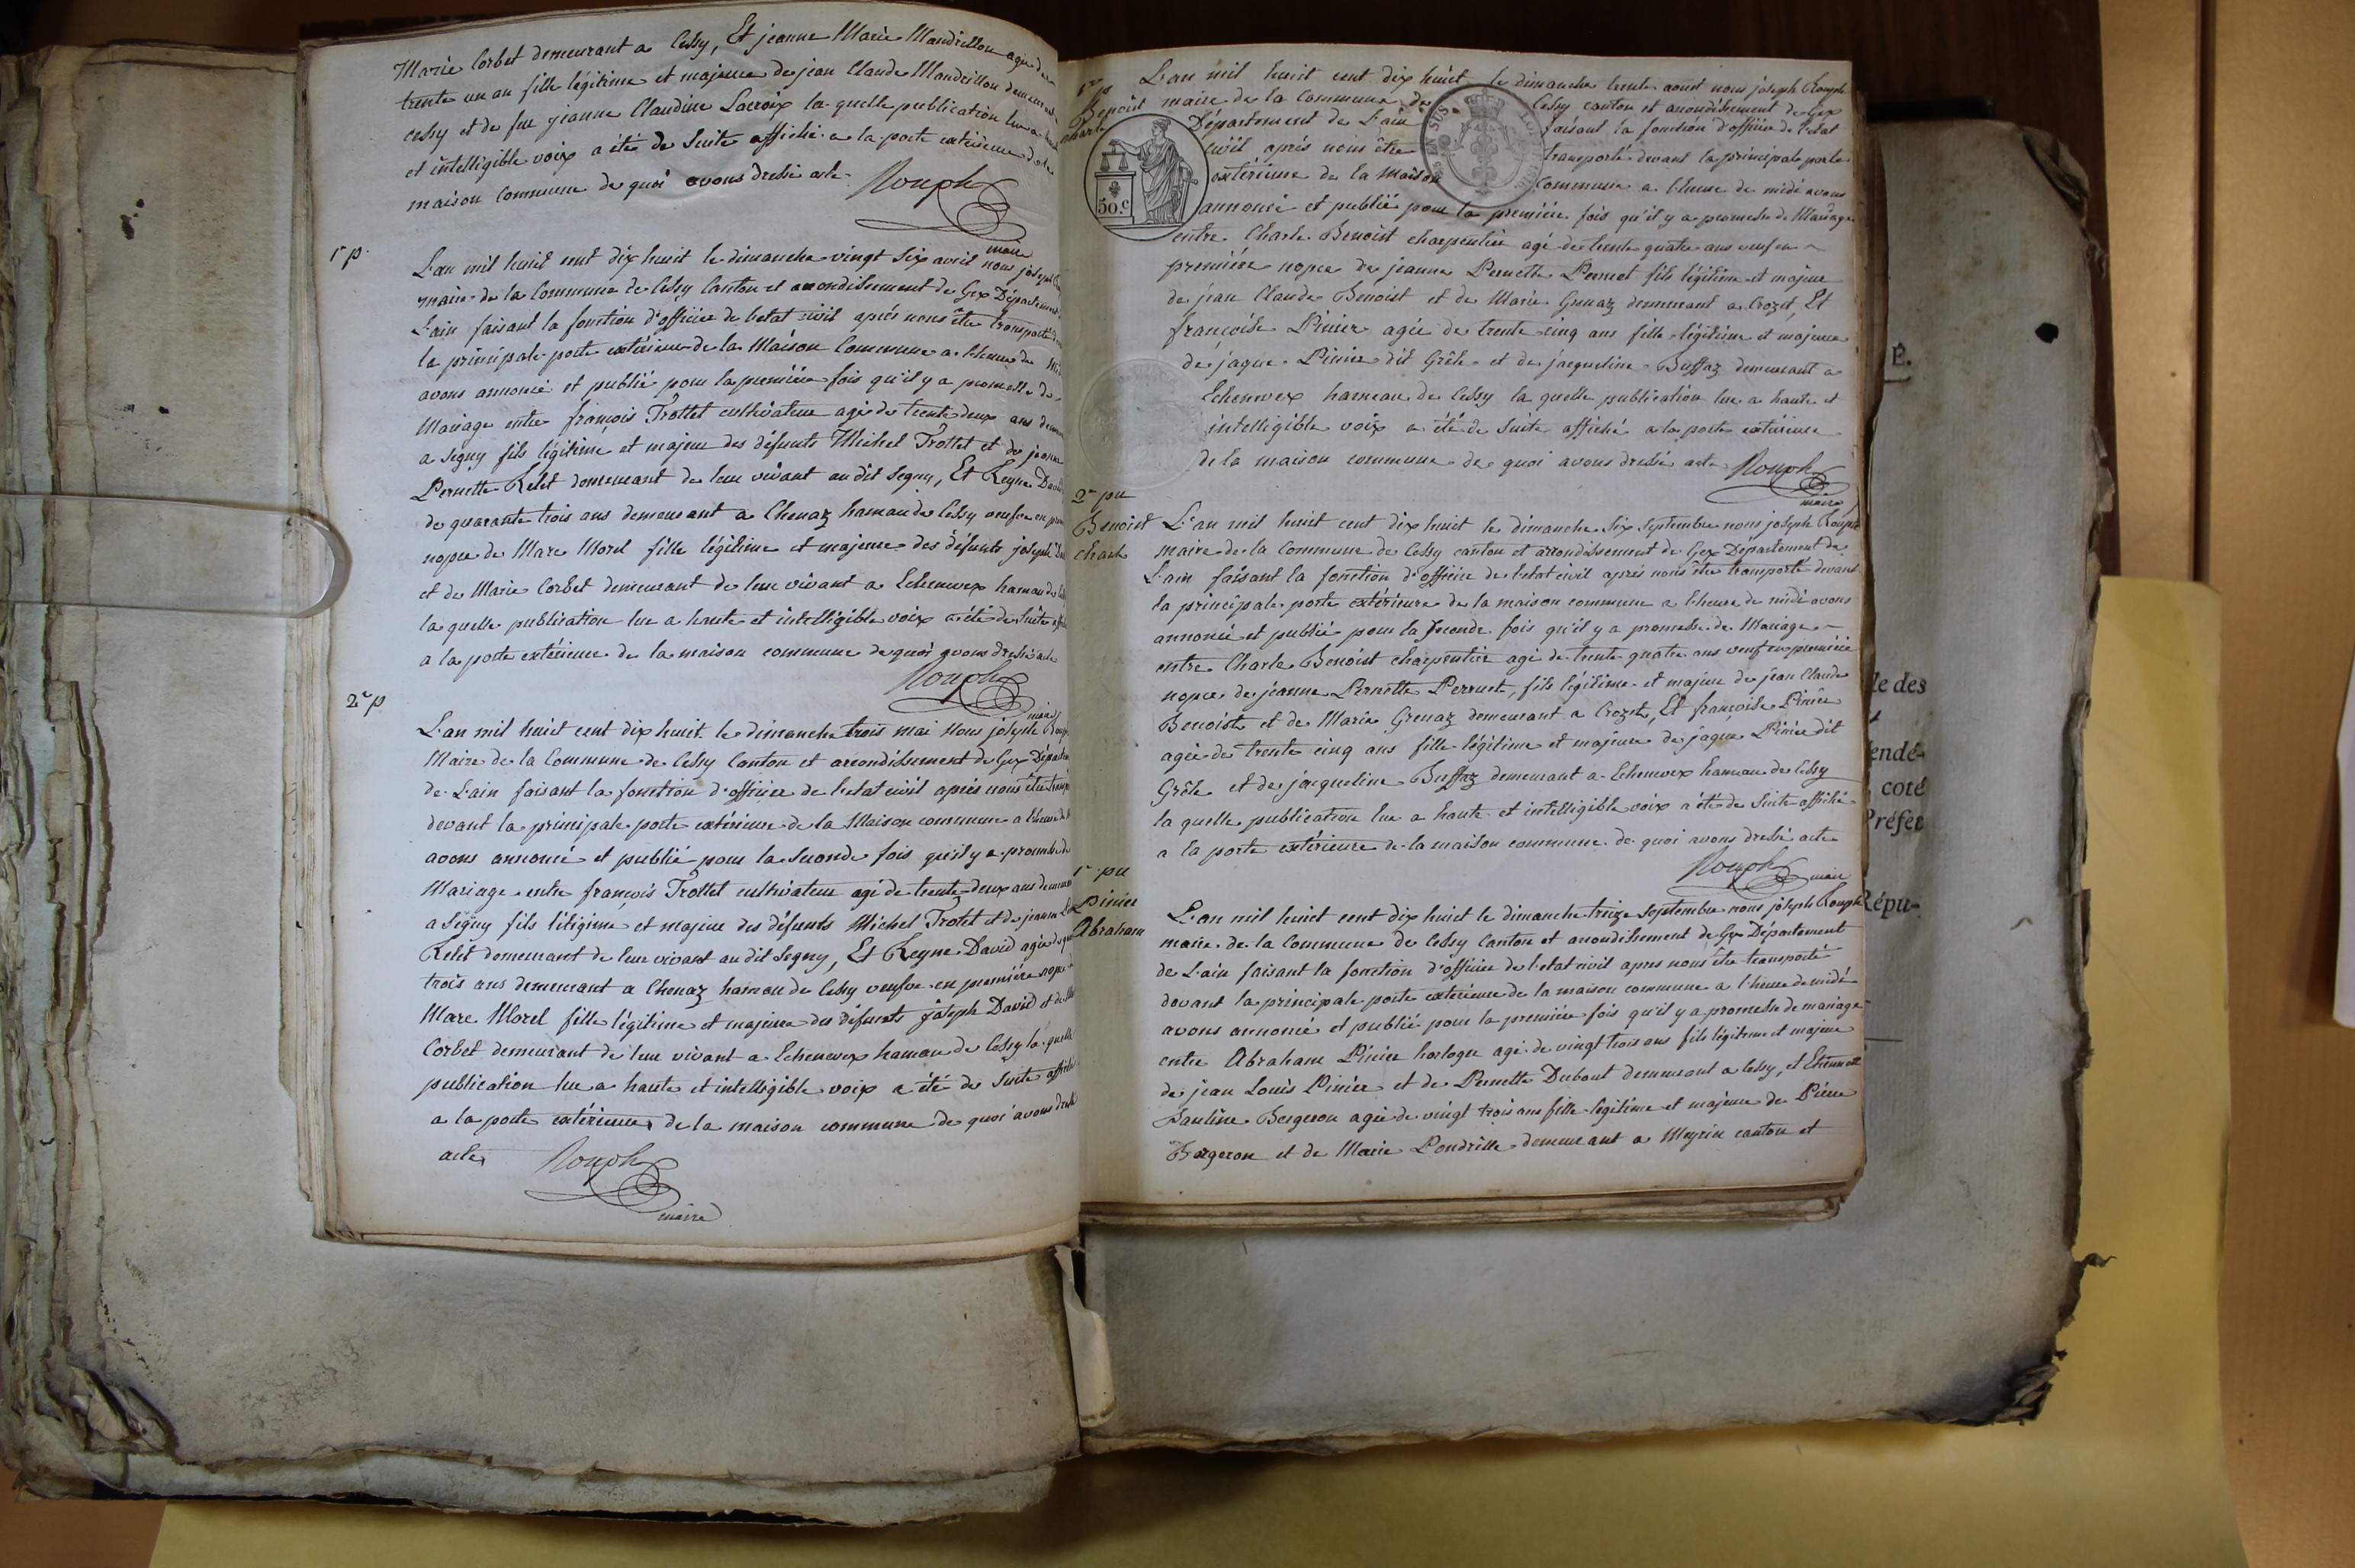 Marie Corbet demeurant a Cessy, Et jeanne Marie Mandrillon agée de
trente un an fille légitime et majeure de jean Claude Mandrillon demeurant
cessy et de feu jeanne Claudine Lacroix la quelle publication lue a haute
et intelligible voix a été de suite affiché a la porte extérieure de la
maison commune de quoi avons dressé acte
Rouph
maire
1r p.
L'an mil huit cent dix huit le dimanche vingt six avril nous joseph
maire de la Commune de Cessy Canton et arrondissement de Gex Département
L'ain faisant la fonction d'officier de l'etat civil après nous être transporté
la principale porte extérieure de la Maison Commune a l'heure de
avons annoncé et publié pour la première fois qu'il y a promesse de
Mariage entre françois Trottet cultivateur agé de trente deux ans
a Segny fils légitime et majeur des défunts Michel Trottet et de jeanne
Pernette Relet demeurant de leur vivant au dit Segny, Et Reyne David
de quarante trois ans demeurant a Chenaz hamau de Cessy veufve en
nopce de Marc Morel fille légitime et majeure des défunts joseph
et de Marie Corbet demeurant de leur vivant a Echenevex hamau de
la quelle publication lue a haute et intelligible voix a été de suite
a la porte extérieure de la maison commune de quoi avons dressé acte
Rouph
maire
2e p
L'an mil huit cent dix huit le dimanche trois mai nous joseph
Maire de la Commune de Cessy Canton et arrondissement de Gex
de L'ain faisant la fonction d'officier de l'etat civil après nous être
devant la principale porte extérieure de la Maison commune a l'heure de
avons annoncé et publié pour la seconde fois qu'il y a promesse de
Mariage entre françois Trottet cultivateur agé de trente deux ans
a Segny fils litigime et majeur des défunts Michel Trotet et de jeanne
Relet demeurant de leur vivant au dit Segny, Et Reyne David agée de
trois ans demeurant a Chenaz hamau de Cessy veufve en première nopce
Marc Morel fille légitime et majeure des défunts joseph David et de
Corbet demeurant de leur vivant a Echenevex hamau de Cessy la quelle
publication lue a haute et intelligible voix a été de suite affiché
a la porte extérieure de la maison commune de quoi avons dressé
acte
Rouph
maire
1r p
Benoist
Charle
L'an mil huit cent dix huit le dimanche trente aoust nous joseph Rouph
maire de la Commune de Cessy canton et arrondissement de Gex
Département de L'ain faisant la fonction d'officier de l'etat
civil après nous être transporté devant la principale porte
extérieure de la Maison commune a l'heure de midi avons
annoncé et publié pour la première fois qu'il y a promesse de Mariage
50.c
entre Charle Benoist charpentier agé de trente quatre ans veuf en
première nopce de jeanne Pernette Perruet fils légitime et majeur
de jean Claude Benoist et de Marie Grenaz demeurant a Crozet, Et
françoise Pinier agée de trente cinq ans fille légitime et majeure
de jaque Pinier dit Grêle et de jacqueline Buffaz demeurant a
Echenevex hameau de Cessy la quelle publication lue a haute et
intelligible voix a été de suite affiché a la porte extérieure
de la maison commune de quoi avons dressé acte Rouph
maire
2e pu
Benoist
Charle
L'an mil huit cent dix huit le dimanche six septembre nous joseph Rouph
maire de la Commune de Cessy canton et arrondissement de Gex Département de
L'ain faisant la fonction d'officier de l'etat civil après nous être transporté devant
la principale porte extérieure de la maison commune a l'heure de midi avons
annoncé et publié pour la seconde fois qu'il y a promesse de Mariage
entre Charle Benoist charpentier agé de trente quatre ans veuf en première
nopce de jeanne Pernette Perruet, fils légitime et majeur de jean Claude
Benoist et de Marie Grenaz demeurant a Crozet, Et françoise Pinier
agée de trente cinq ans fille légitime et majeure de jaque Pinier dit
Grêle et de jacqueline Buffaz demeurant a Echenevex hameau de Cessy
la quelle publication lue a haute et intelligible voix a été de suite affiché
a la porte extérieure de la maison commune de quoi avons dressé acte
Rouph
maire
1r pu
Pinier
Abraham
L'an mil huit cent dix huit le dimanche treize septembre nous joseph Rouph
maire de la Commune de Cessy Canton et arrondissement de Gex Département
de L'ain faisant la fonction d'officier de l'etat civil apres nous être transporté
devant la principale porte exterieure de la maison commune a l'heure de midi
avons annoncé et publié pour la première fois qu'il y a promesse de mariage
entre Abraham Pinier horloger agé de vingt trois ans fils légitime et majeur
de jean Louis Pinier et de Pernette Dubout demeurant a Cessy, et Etiennette
Pauline Bergeron agée de vingt trois ans fille legitime et majeure de Pierre
Bergeron et de Marie Pondrille demeurant a Meyrin canton et
E.
le des
endé-
coté
Préfet
Répu-